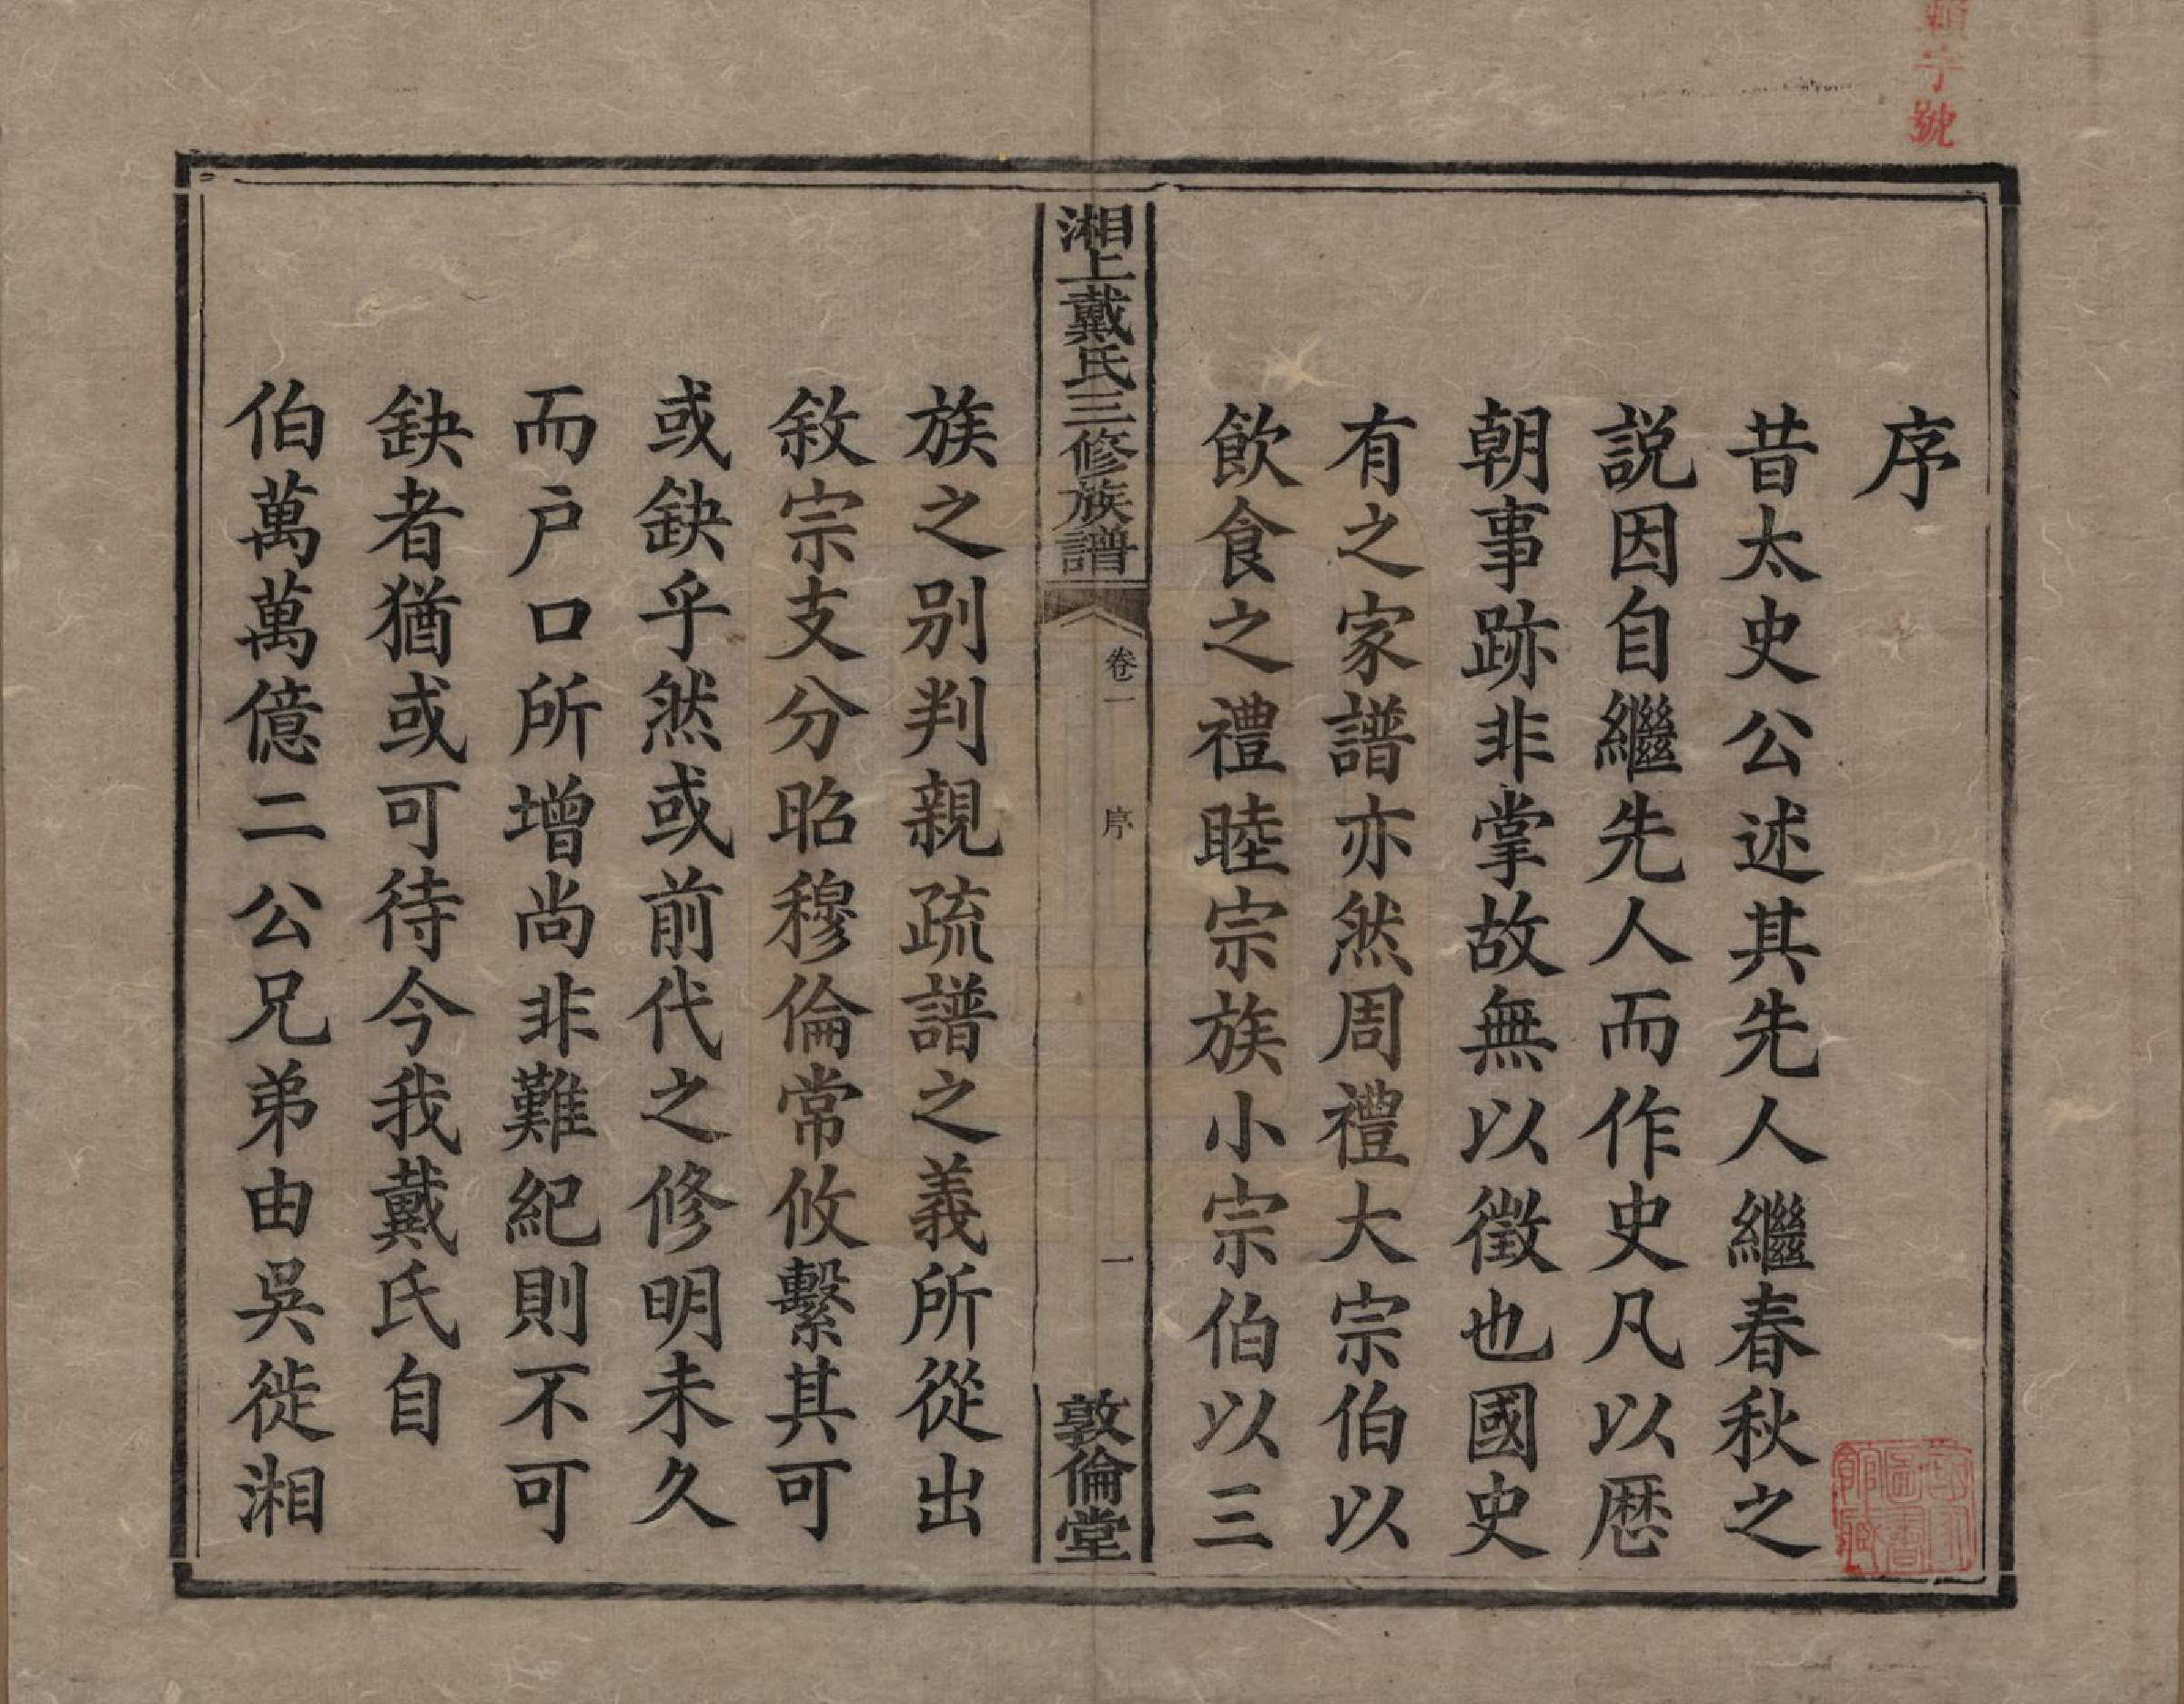 序
昔太史公述其先人繼春秋之
説因自繼先人而作史凡以歷
朝事跡非掌故無以徵也國史
有之家譜亦然周禮大宗伯以
飲食之禮睦宗族小宗伯以三
湘上戴氏三修族譜
卷一
序
一
敦倫堂
族之别判親疏譜之義所從出
敘宗支分昭穆倫常攸繫其可
或缺乎然或前代之修明未久
而户口所增尚非難紀則不可
缺者猶或可待今我戴氏自
伯萬萬億二公兄弟由吳徙湘
字號